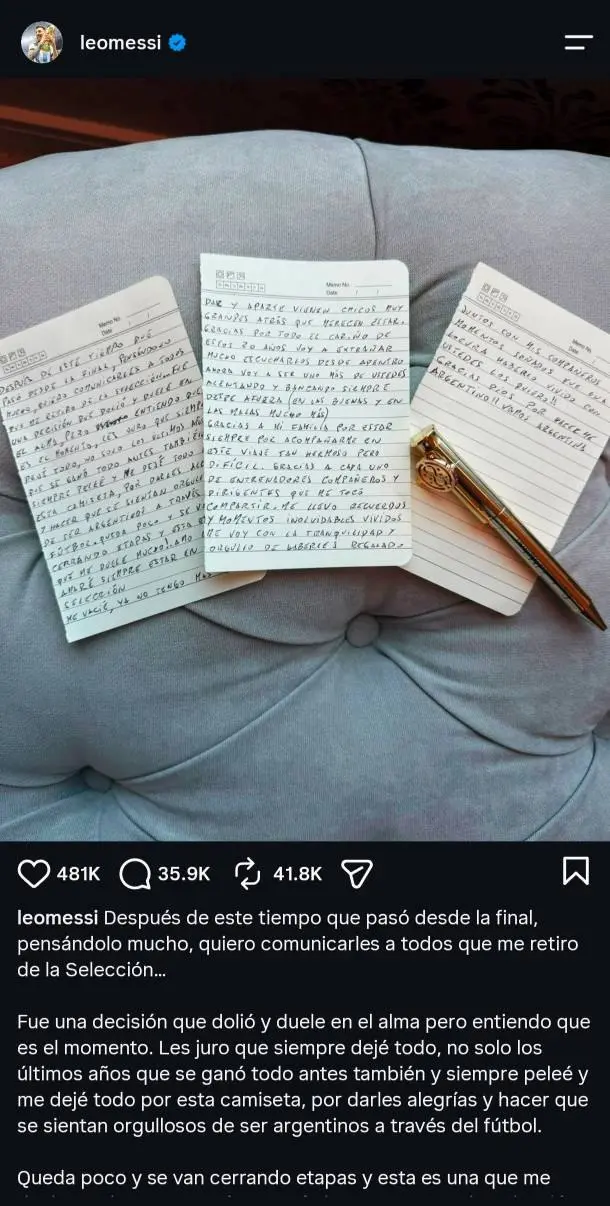 leomessi
Memo No.
Date / /
DESPUES DE ESTE TIEMPO QUE
PASO DESDE LA FINAL, PENSANDOLO
MUCHO, QUIERO COMUNICARLES A TODOS
QUE ME RETIRO DE LA SELECCION. FUE
UNA DECISIÓN QUE DOLIÓ Y DUELE EN
EL ALMA PERO ENTIENDO QUE
ES EL MOMENTO. LES JURO QUE SIEMPRE
DEJÉ TODO, NO SOLO LOS ULTIMOS AÑOS
QUE SE GANÓ TODO ANTES TAMBIÉN
SIEMPRE PELEÉ Y ME DEJÉ TODO
ESTA CAMISETA, POR DARLES ALE
Y HACER QUE SE SIENTAN ORGULL
DE SER ARGENTINOS A TRAVÉS
FÚTBOL. QUEDA POCO Y SE V
CERRANDO ETAPAS Y ESTA E
QUE ME DUELE MUCHO. AMO
AMARÉ SIEMPRE ESTAR EN
SELECCIÓN
ME VACIÉ, YA NO TENGO MAS
Memo No.
Date / /
DAR Y APARTE VIENEN CHICOS MUY
GRANDES ATRÁS QUE MERECEN ESTAR.
GRACIAS POR TODO EL CARIÑO DE
ESTOS 20 AÑOS VOY A EXTRAÑAR
MUCHO ESCUCHARLOS DESDE ADENTRO
AHORA VOY A SER UNO MÁS DE USTEDES
ALENTANDO Y BANCANDO SIEMPRE
DESDE AFUERA (EN LAS BUENAS Y EN
LAS MALAS MUCHO MÁS)
GRACIAS A MI FAMILIA POR ESTAR
SIEMPRE POR ACOMPAÑARME EN
ESTE VIAJE TAN HERMOSO PERO
DIFÍCIL. GRACIAS A CADA UNO
DE ENTRENADORES COMPAÑEROS Y
DIRIGENTES QUE ME TOCÓ
COMPARTIR. ME LLEVO RECUERDOS
Y MOMENTOS INOLVIDABLES VIVIDOS
ME VOY CON LA TRANQUILIDAD Y
ORGULLO DE HABERLES REGALADO
Memo No.
Date
JUNTOS CON MIS COMPAÑEROS
MOMENTOS SOÑADOS FUE UNA
LOCURA HABERLO VIVIDO CON
USTEDES LOS QUIERO!!
GRACIAS DIOS POR HACERME
ARGENTINO!! VAMOS ARGENTINA
481K 35.9K 41.8K
leomessi Después de este tiempo que pasó desde la final,
pensándolo mucho, quiero comunicarles a todos que me retiro
de la Selección...
Fue una decisión que dolió y duele en el alma pero entiendo que
es el momento. Les juro que siempre dejé todo, no solo los
últimos años que se ganó todo antes también y siempre peleé y
me dejé todo por esta camiseta, por darles alegrías y hacer que
se sientan orgullosos de ser argentinos a través del fútbol.
Queda poco y se van cerrando etapas y esta es una que me